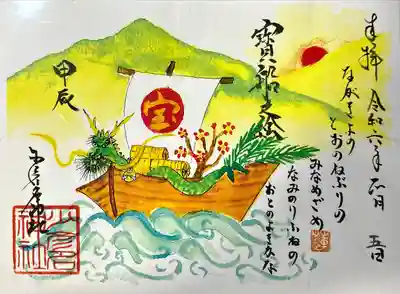 奉拝 令和六年元月 五日
なかきよの
とおのねぶりの
みなめざめ
なみのりふねの
おとのよきかな
寳船之絵
宝
甲辰
神社